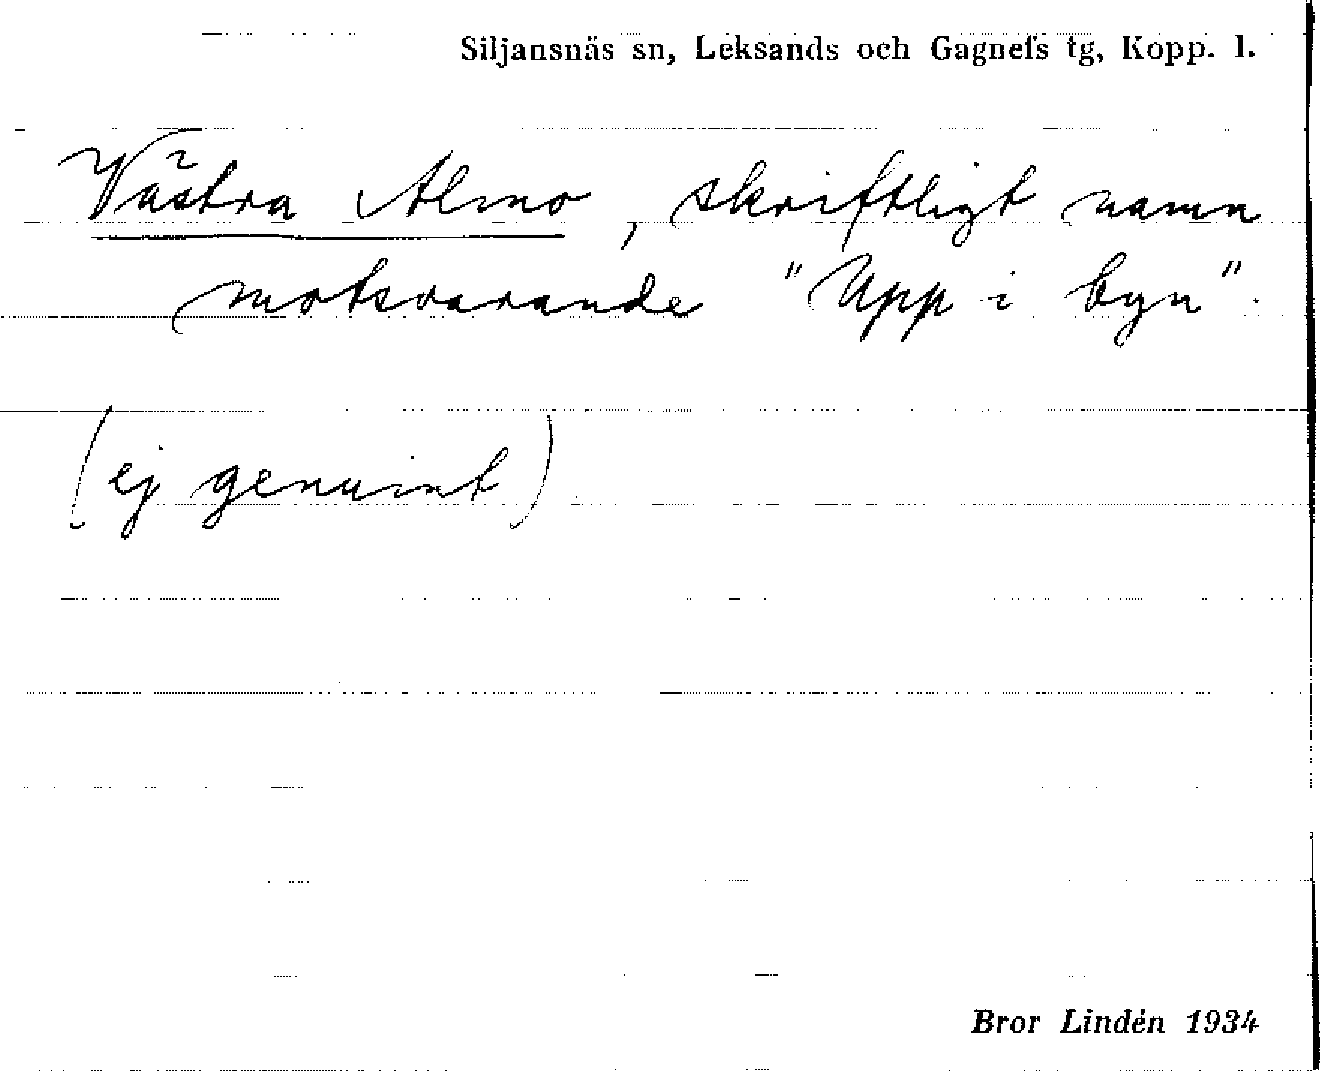 Siljansnäs sn, Leksands och Gagnefs tg, Kopp. l.
Västra Almo, skriftligt namn
motsvarande "Upp i byn".
(ej genuint)
Bror Lindén 1934